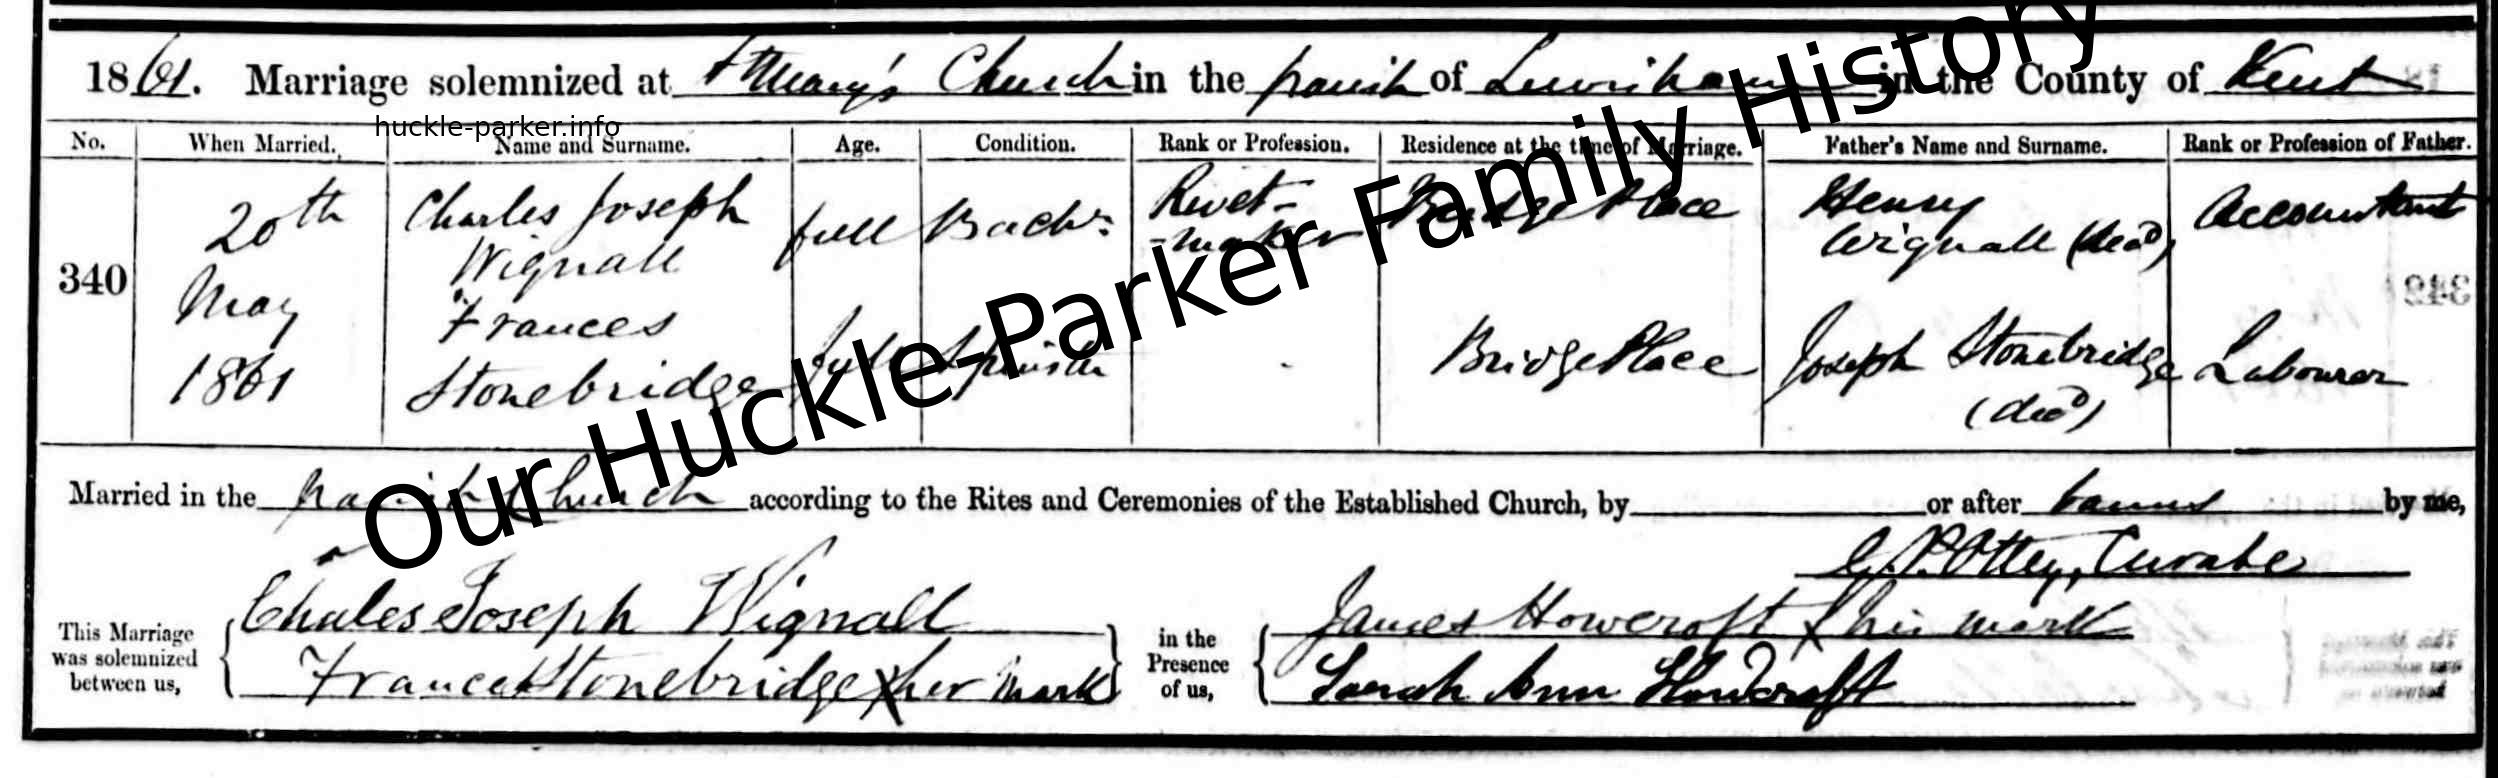 1861. Marriage solemnized at St Mary's Church in the parish of Lewisham in the County of Kent
huckle-parker.info
No. When Married. Name and Surname. Age. Condition. Rank or Profession. Residence at the time of Marriage. Father's Name and Surname. Rank or Profession of Father.
340
20th
May
1861
Charles Joseph
Wignall
full
Bachr
Rivet-
-maker
Bridge Place
Henry
Wignall (dead)
Accountant
Frances
Stonebridge
full
Spinster
-
Bridge Place
Joseph Stonebridge
(dead)
Labourer
Our Huckle-Parker Family History
Married in the parish Church according to the Rites and Ceremonies of the Established Church, by or after banns by me,
Ottley, Curate
This Marriage
was solemnized
between us,
Charles Joseph Wignall
Frances Stonebridge X her mark
in the
Presence
of us,
James Howcroft X his mark
Sarah Ann Howcroft
342